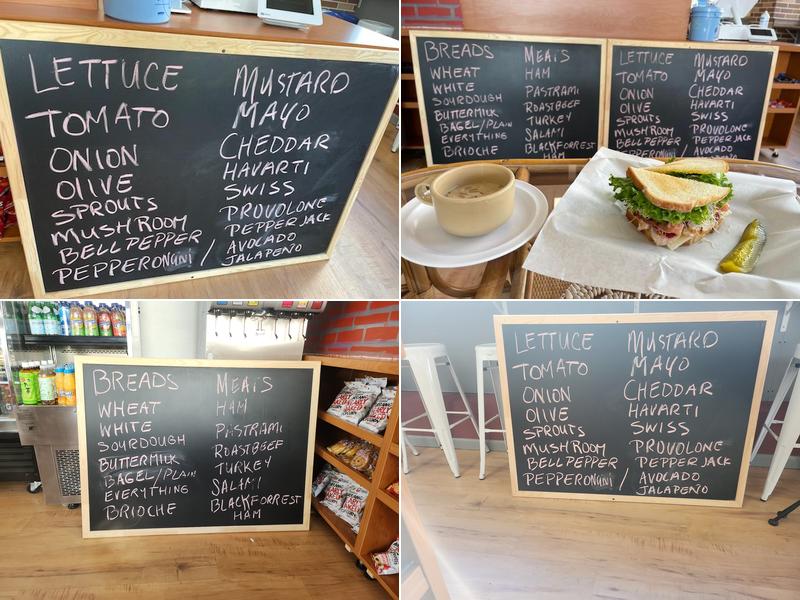 LETTUCE MUSTARD
TOMATO MAYO
ONION CHEDDAR
OLIVE HAVARTI
SPROUTS SWISS
MUSHROOM PROVOLONE
BELL PEPPER PEPPER JACK
PEPPERONCINI / AVOCADO
JALAPEÑO
BREADS MEATS
WHEAT HAM
WHITE PASTRAMI
SOURDOUGH ROASTBEEF
BUTTERMILK TURKEY
BAGEL/PLAIN SALAMI
EVERYTHING BLACKFORREST
BRIOCHE HAM
LETTUCE MUSTARD
TOMATO MAYO
ONION CHEDDAR
OLIVE HAVARTI
SPROUTS SWISS
MUSHROOM PROVOLONE
BELL PEPPER PEPPER JACK
AVOCADO
BREADS MEATS
WHEAT HAM
WHITE PASTRAMI
SOURDOUGH ROASTBEEF
BUTTERMILK TURKEY
BAGEL/PLAIN SALAMI
EVERYTHING BLACKFORREST
BRIOCHE HAM
LETTUCE MUSTARD
TOMATO MAYO
ONION CHEDDAR
OLIVE HAVARTI
SPROUTS SWISS
MUSHROOM PROVOLONE
BELL PEPPER PEPPER JACK
/ AVOCADO
JALAPEÑO